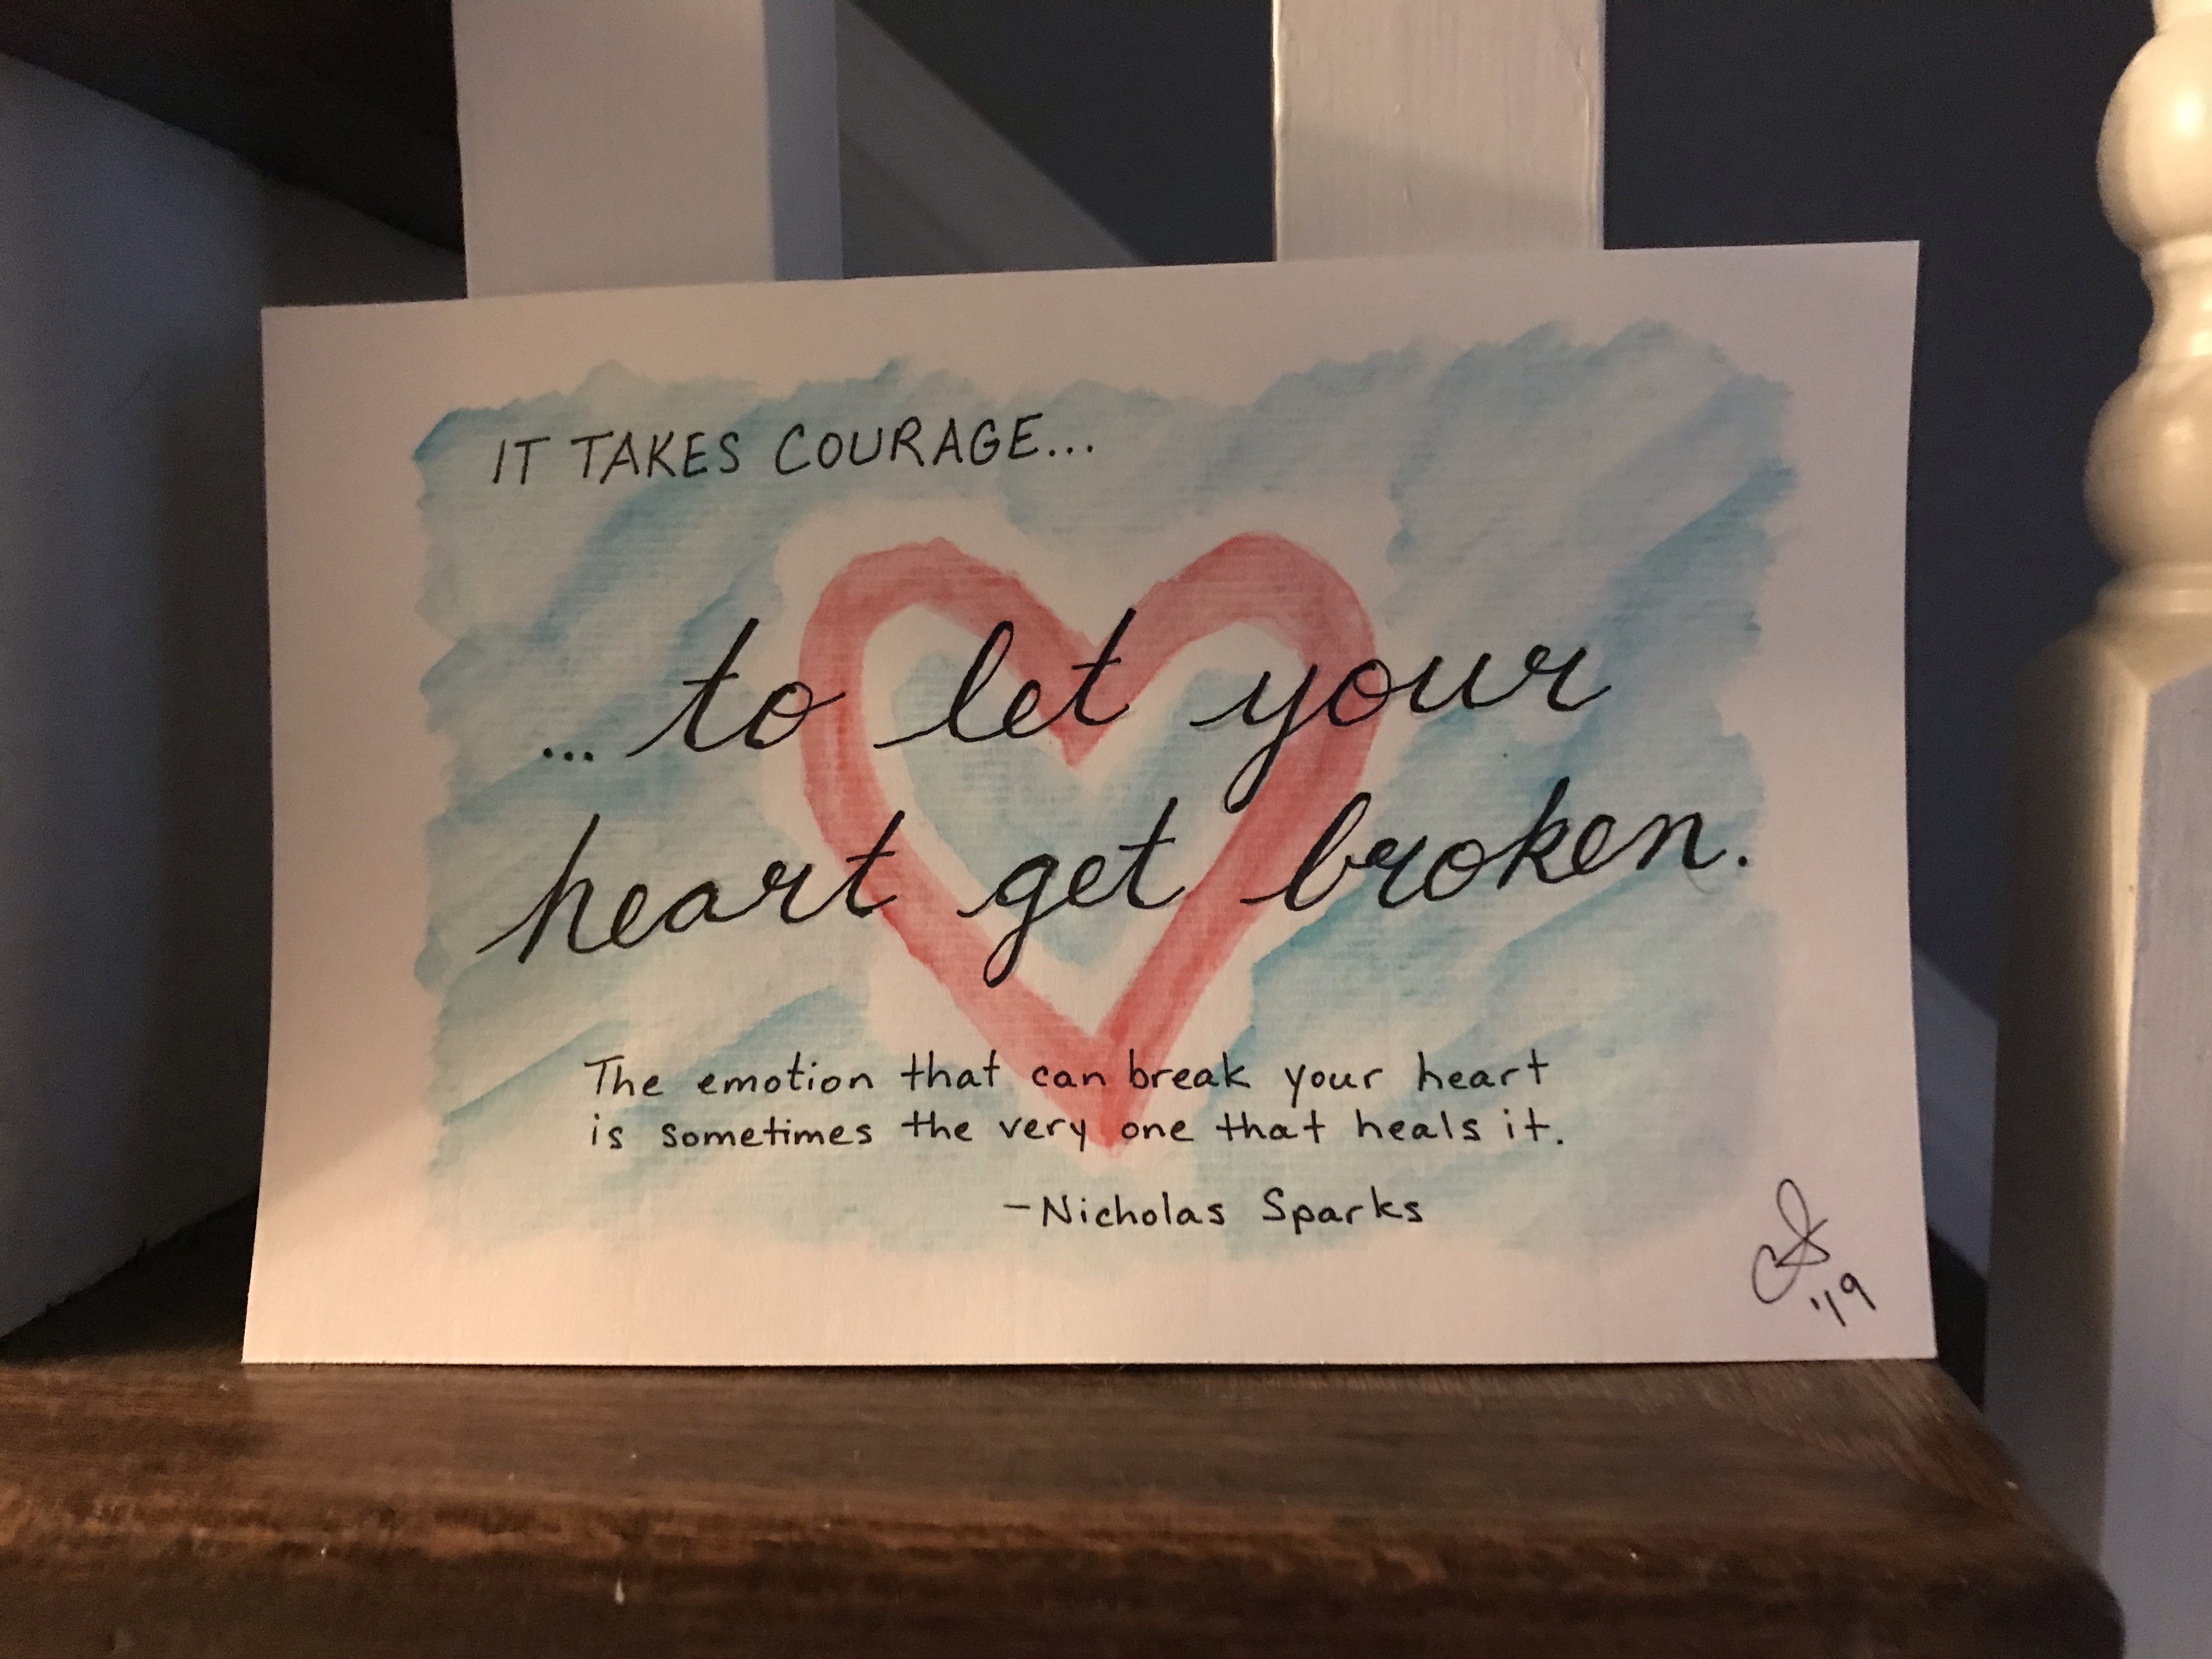 IT TAKES COURAGE...
... to let your
heart get broken.
The emotion that can break your heart
is sometimes the very one that heals it.
-Nicholas Sparks
'19